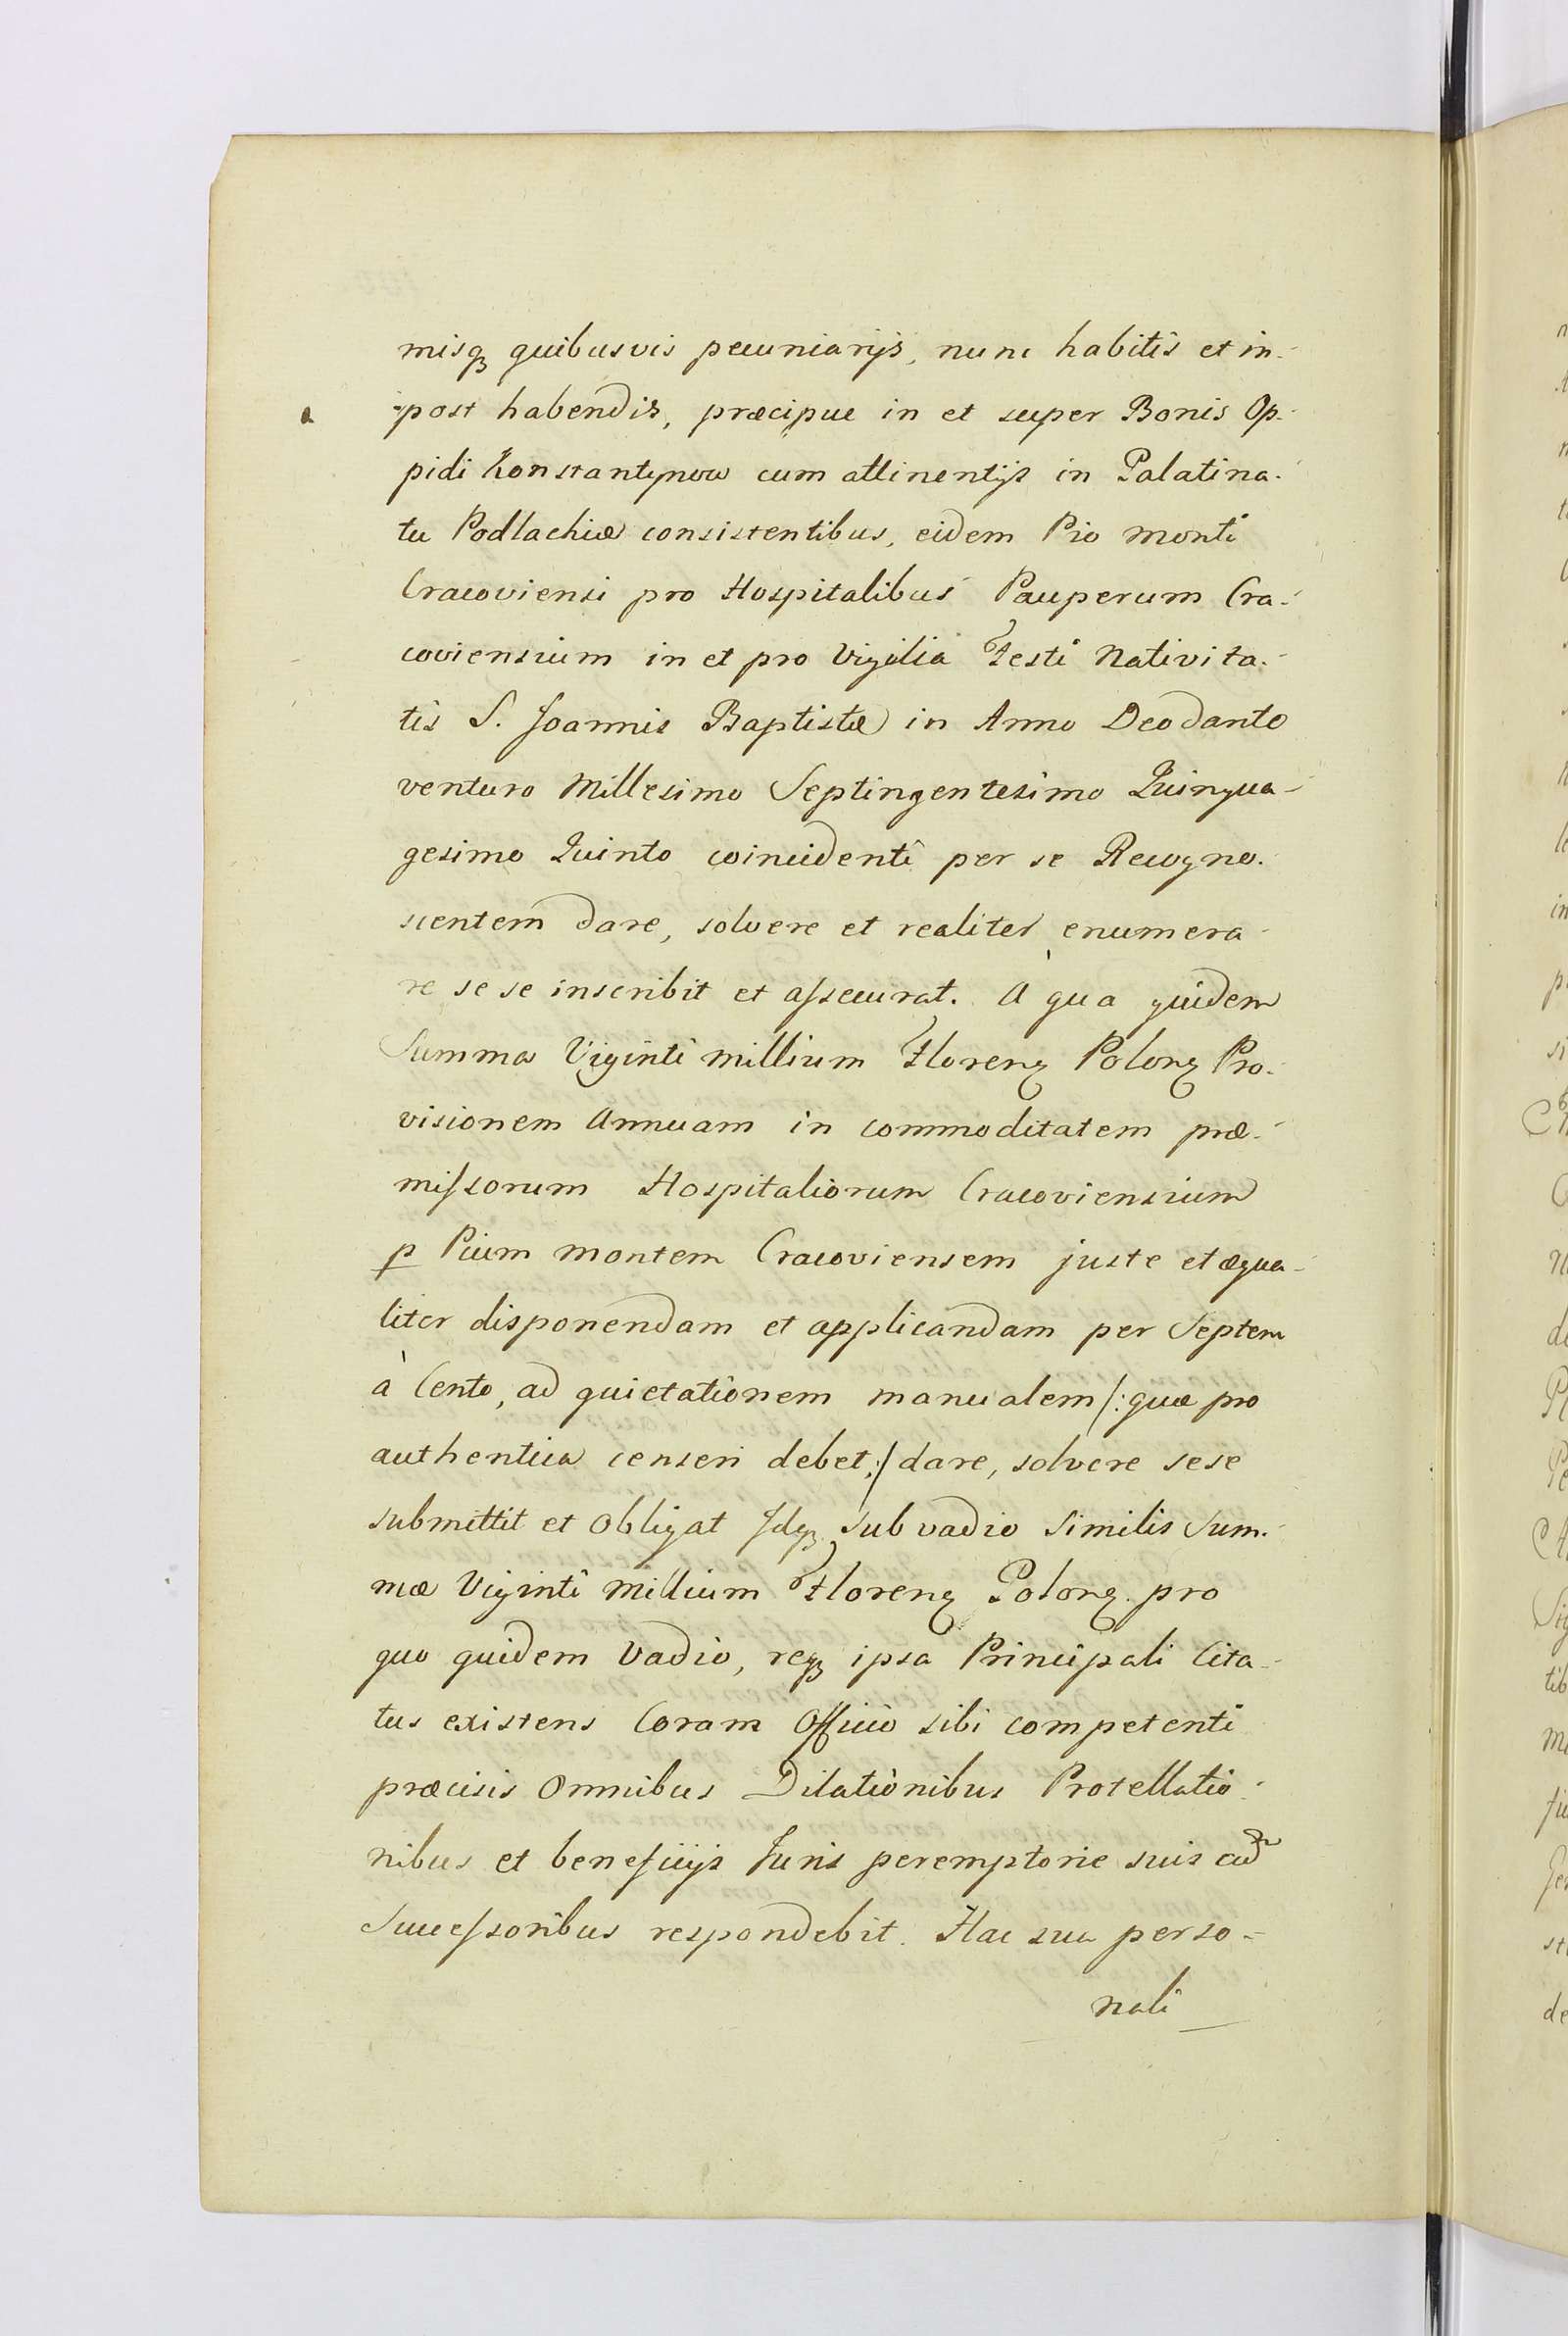 misq́ꝫ quibusvis pecuniarijs, nunc habitis et in-
post habendis, præcipue in et super Bonis Op-
pidi Konstantynow cum attinentijs in Palatina-
tu Podlachiæ consistentibus, eidem Pio monti
Cracoviensi pro Hospitalibus Pauperum Cra-
coviensium in et pro Vigilia Festi Nativita-
tis S. Joannis Baptistæ in Anno Deo dante
venturo Millesimo Septingentesimo Quinqua-
gesimo Quinto coincidenti per se Recogno-
scentem dare, solvere et realiter enumera-
re se se inscribit et assecurat. À qua quidem
Summa Viginti millium Florenꝫ Polonꝫ Pro-
visionem Annuam in commoditatem præ-
missorum Hospitaliorum Cracoviensium
p Pium montem Cracoviensem juste et æqua-
liter disponendam et applicandam per Septem
à Cento, ad quietationem manualem /: quæ pro
authentica censeri debet :/ dare, solvere sese
submittit et Obligat Idqꝫ sub vadio similis Sum-
mæ Viginti Millium Florenꝫ Polonꝫ. pro
quo quidem Vadio, reqꝫ ipsa Principali Cita-
tus existens Coram Officio sibi competenti
præcisis Omnibus Dilationibus Protellatio-
nibus et beneficijs Juris peremptorie suis cū
Successoribus respondebit. Hac sua perso-
nali